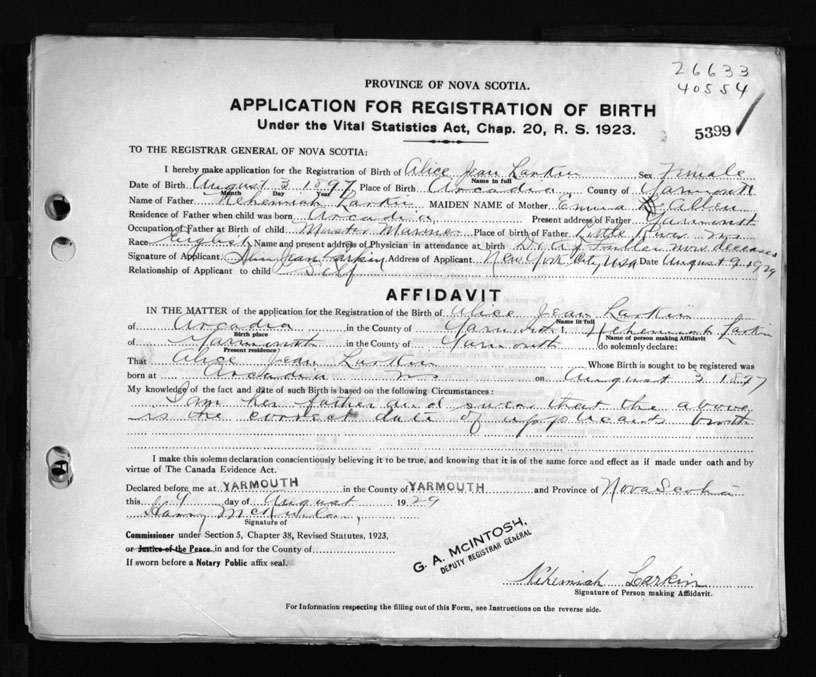 26633
40554
PROVINCE OF NOVA SCOTIA.
APPLICATION FOR REGISTRATION OF BIRTH
Under the Vital Statistics Act, Chap. 20, R. S. 1923.
5399
TO THE REGISTRAR GENERAL OF NOVA SCOTIA:
I hereby make application for the Registration of Birth of Alice Jean Larkin Sex Female
Name in full
Date of Birth August 3 1897 Place of Birth Arcadia County of Yarmouth
Month Day Year
Name of Father Nehemiah Larkin MAIDEN NAME of Mother Emma Allen
Residence of Father when child was born Arcadia Present address of Father Yarmouth
Occupation of Father at Birth of child Master Mariner Place of birth of Father Little River NS
Race English Name and present address of Physician in attendance at birth Dr now deceased
Signature of Applicant Jean Larkin Address of Applicant New York City, USA Date August 9 1929
Relationship of Applicant to child Self
AFFIDAVIT
IN THE MATTER of the application for the Registration of the Birth of Alice Jean Larkin
Name in full
of Arcadia in the County of Yarmouth I, Nehemiah Larkin
Birth place Name of person making Affidavit
of Yarmouth in the County of Yarmouth do solemnly declare:
Present residence
That Alice Jean Larkin Whose Birth is sought to be registered was
born at Arcadia NS on August 3 1897
My knowledge of the fact and date of such Birth is based on the following Circumstances:
I am her father and swear that the above
is the correct date of applicants birth
I make this solemn declaration conscientiously believing it to be true, and knowing that it is of the same force and effect as if made under oath and by
virtue of The Canada Evidence Act.
Declared before me at YARMOUTH in the County of YARMOUTH and Province of Nova Scotia
this day of August 1929
Harry
Signature of
Commissioner under Section 5, Chapter 38, Revised Statutes, 1923,
or Justice of the Peace in and for the County of
If sworn before a Notary Public affix seal.
G. A. McINTOSH,
DEPUTY REGISTRAR GENERAL
Nehemiah Larkin
Signature of Person making Affidavit.
For Information respecting the filling out of this Form, see Instructions on the reverse side.